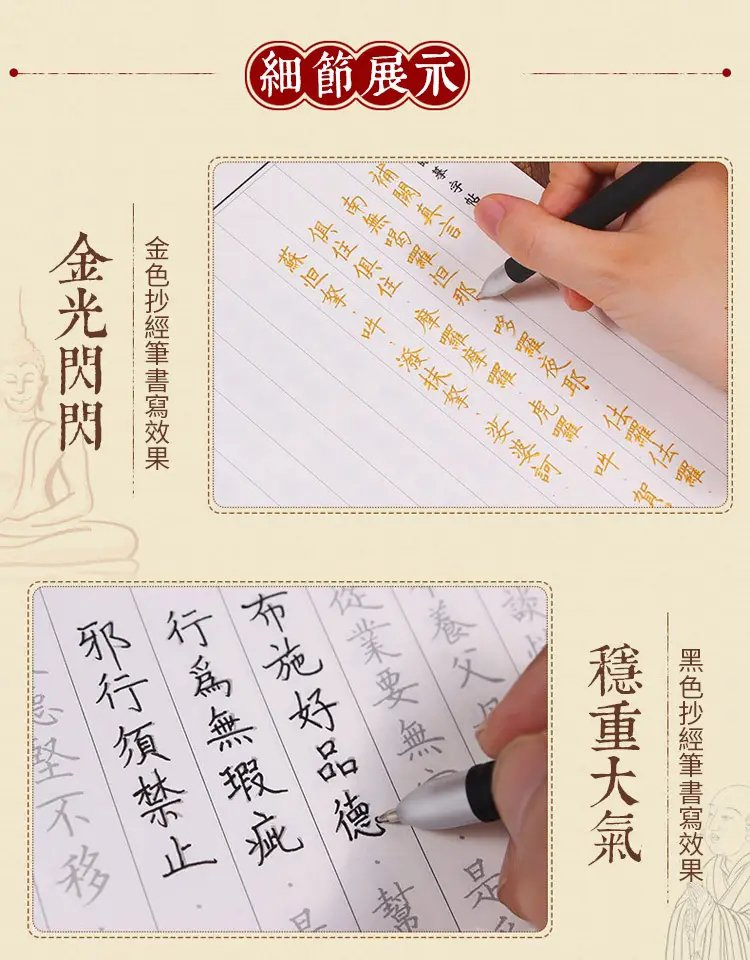 細節展示
金光閃閃
金色抄經筆書寫效果
摹字帖
補闕真言
南無喝羅但那
哆羅夜耶
佉羅佉羅
俱住俱住
摩羅摩羅
虎羅
吽
賀
蘇怛拏
吽
潑抹拏
娑婆訶
穩重大氣
黑色抄經筆書寫效果
談
養父
是
從業要無
幫
布施好品德
行爲無瑕疵
邪行須禁止
堅不移